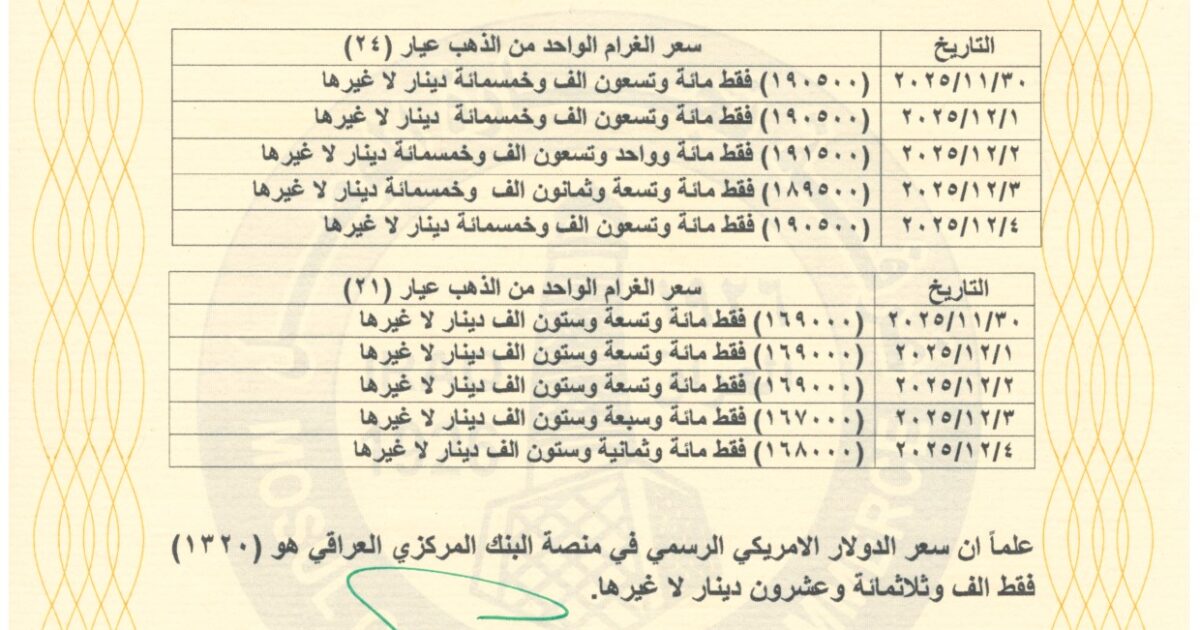 التاريخ سعر الغرام الواحد من الذهب عيار (٢٤)
٢٠٢٥/١١/٣٠ (١٩٠٥٠٠) فقط مائة وتسعون الف وخمسمائة دينار لا غيرها
٢٠٢٥/١٢/١ (١٩٠٥٠٠) فقط مائة وتسعون الف وخمسمائة دينار لا غيرها
٢٠٢٥/١٢/٢ (١٩١٥٠٠) فقط مائة وواحد وتسعون الف وخمسمائة دينار لا غيرها
٢٠٢٥/١٢/٣ (١٨٩٥٠٠) فقط مائة وتسعة وثمانون الف وخمسمائة دينار لا غيرها
٢٠٢٥/١٢/٤ (١٩٠٥٠٠) فقط مائة وتسعون الف وخمسمائة دينار لا غيرها
التاريخ سعر الغرام الواحد من الذهب عيار (٢١)
٢٠٢٥/١١/٣٠ (١٦٩٠٠٠) فقط مائة وتسعة وستون الف دينار لا غيرها
٢٠٢٥/١٢/١ (١٦٩٠٠٠) فقط مائة وتسعة وستون الف دينار لا غيرها
٢٠٢٥/١٢/٢ (١٦٩٠٠٠) فقط مائة وتسعة وستون الف دينار لا غيرها
٢٠٢٥/١٢/٣ (١٦٧٠٠٠) فقط مائة وسبعة وستون الف دينار لا غيرها
٢٠٢٥/١٢/٤ (١٦٨٠٠٠) فقط مائة وثمانية وستون الف دينار لا غيرها
علماً ان سعر الدولار الامريكي الرسمي في منصة البنك المركزي العراقي هو (١٣٢٠)
فقط الف وثلاثمائة وعشرون دينار لا غيرها.